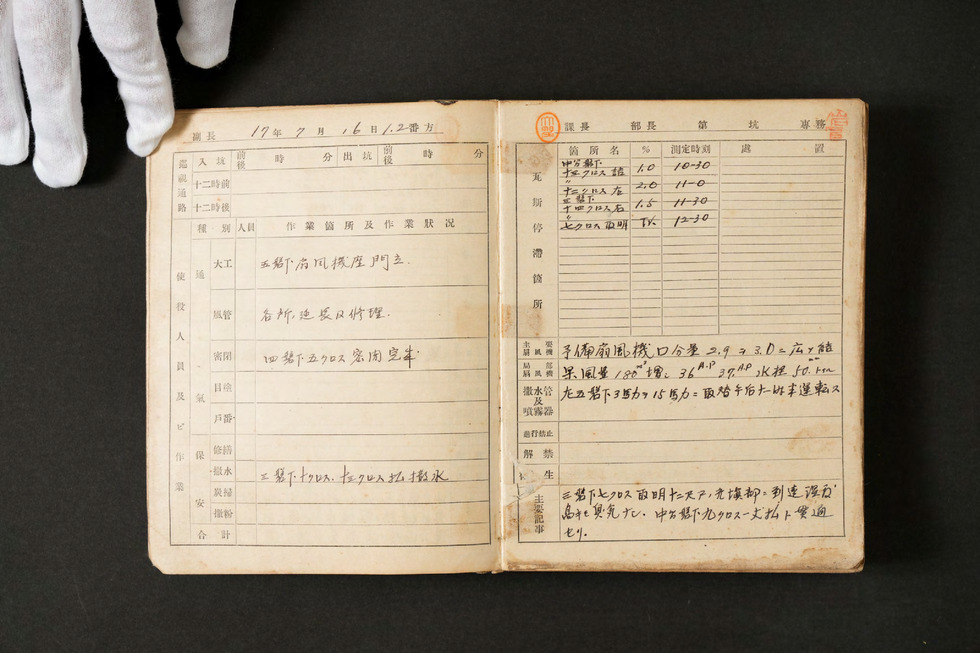 副長 17年 7月 16日 1.2番方
巡視通路 入坑 前後 時 分 出坑 前後 時 分
十二時前
十二時後
使役人員及ビ作業
種別 人員 作業箇所及作業狀況
通氣
大工 五磐下扇風機座門立.
風管 各所,延長及修理.
密閉 四磐下五クロス密閉完半
目塗
戸番
保安
修繕
撒水 三磐下十クロス、十三クロス払撒水
炭掃
撒粉
合計
課長 部長 第 坑 専務
瓦斯停滯箇所
箇所名 % 測定時刻 處置
中分磐下
十三クロス 詰 1.0 10-30
〃
十二クロス 左 2.0 11-0
三磐下
十四クロス右 1.5 11-30
〃
七クロス取明 Tr. 12-30
主要扇風機 予備扇風機口分量 2.9ヲ3.0ニ広ゲ結
局部扇風機 果風量180m³増シ 36H.P 37H.P 水柱50.mm
撒水管及噴霧器 左五磐下3馬力ヲ15馬力ニ取替午后十一時半運転ス
進行禁止
解禁
生
主要記事
三磐下七クロス取明十二尺下,充塡部ニ到達温度
高キモ臭気ナシ. 中分磐下九クロス一丈払ト貫通
セリ.